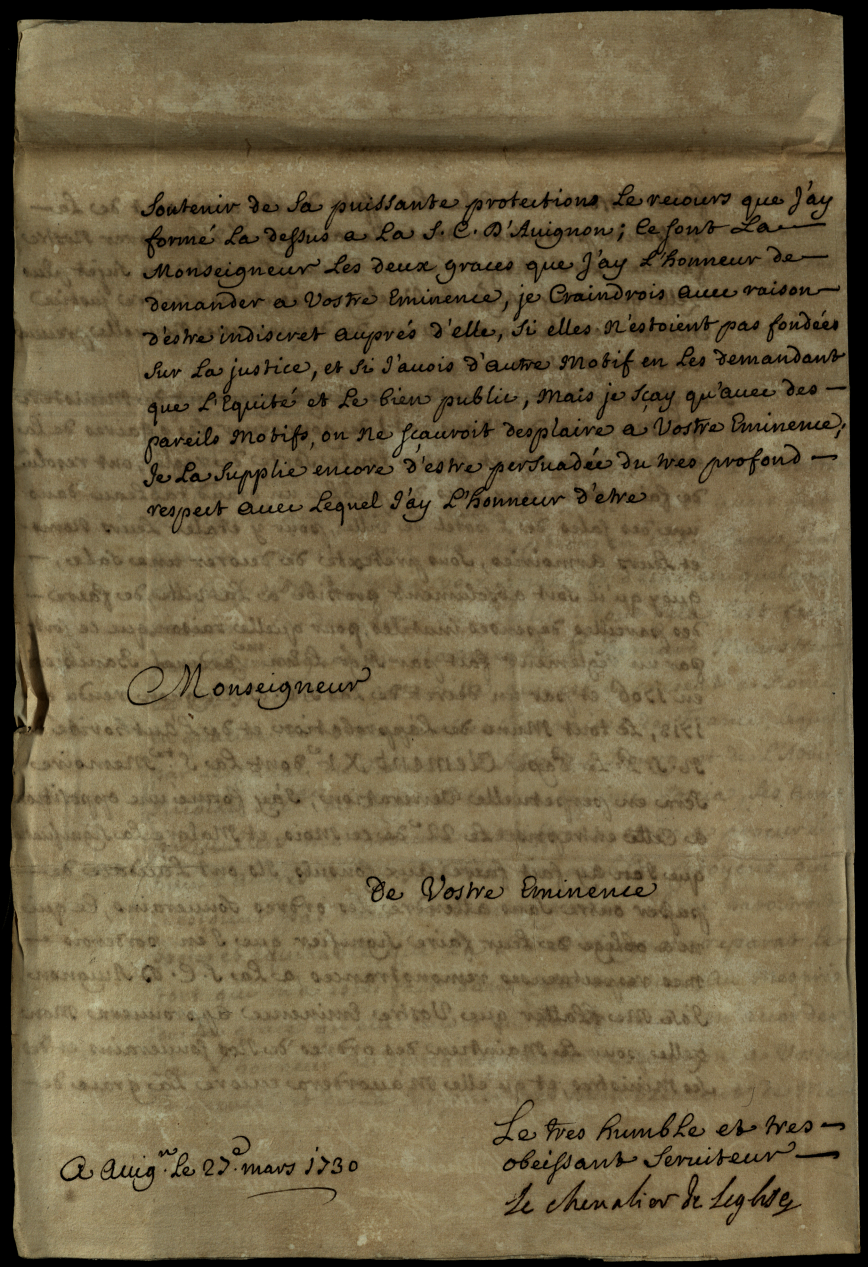 Soutenir de Sa puissante protection, Le recours que J'ay
formé La dessus a La S. C. D'Auignon; Ce sont La
Monseigneur Les deux graces que J'ay L'honneur de
demander a Vostre Eminence, je Craindrois auec raison
d'estre indiscret auprés d'elle, Si elles N'estoient pas fondées
Sur La justice, et Si J'auois d'autre Motif en Les demandant
que L'Equité et Le bien public, Mais je sçay qu'auec des
pareils Motifs, on Ne sçauroit desplaire a Vostre Eminence,
Je La Supplie encore d'estre persuadée du tres profond
respect auec Lequel J'ay L'honneur d'etre
Monseigneur
De Vostre Eminence
Le tres humble et tres
obeissant Seruiteur
A Auig.n Le 27.e mars 1730
Le chevalier de